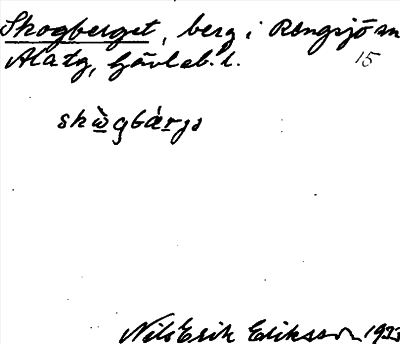 Skogberget, berg i Rengsjö sn
Ala tg, Gävleb. l. 15
skὼgbæ̀rjə
Nils Erik Eriksson 1933